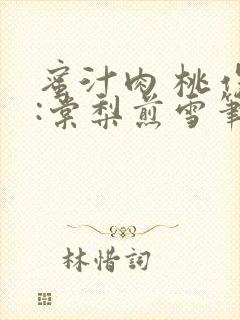 蜜汁肉桃作
:棠梨煎雪筆
林惜詞